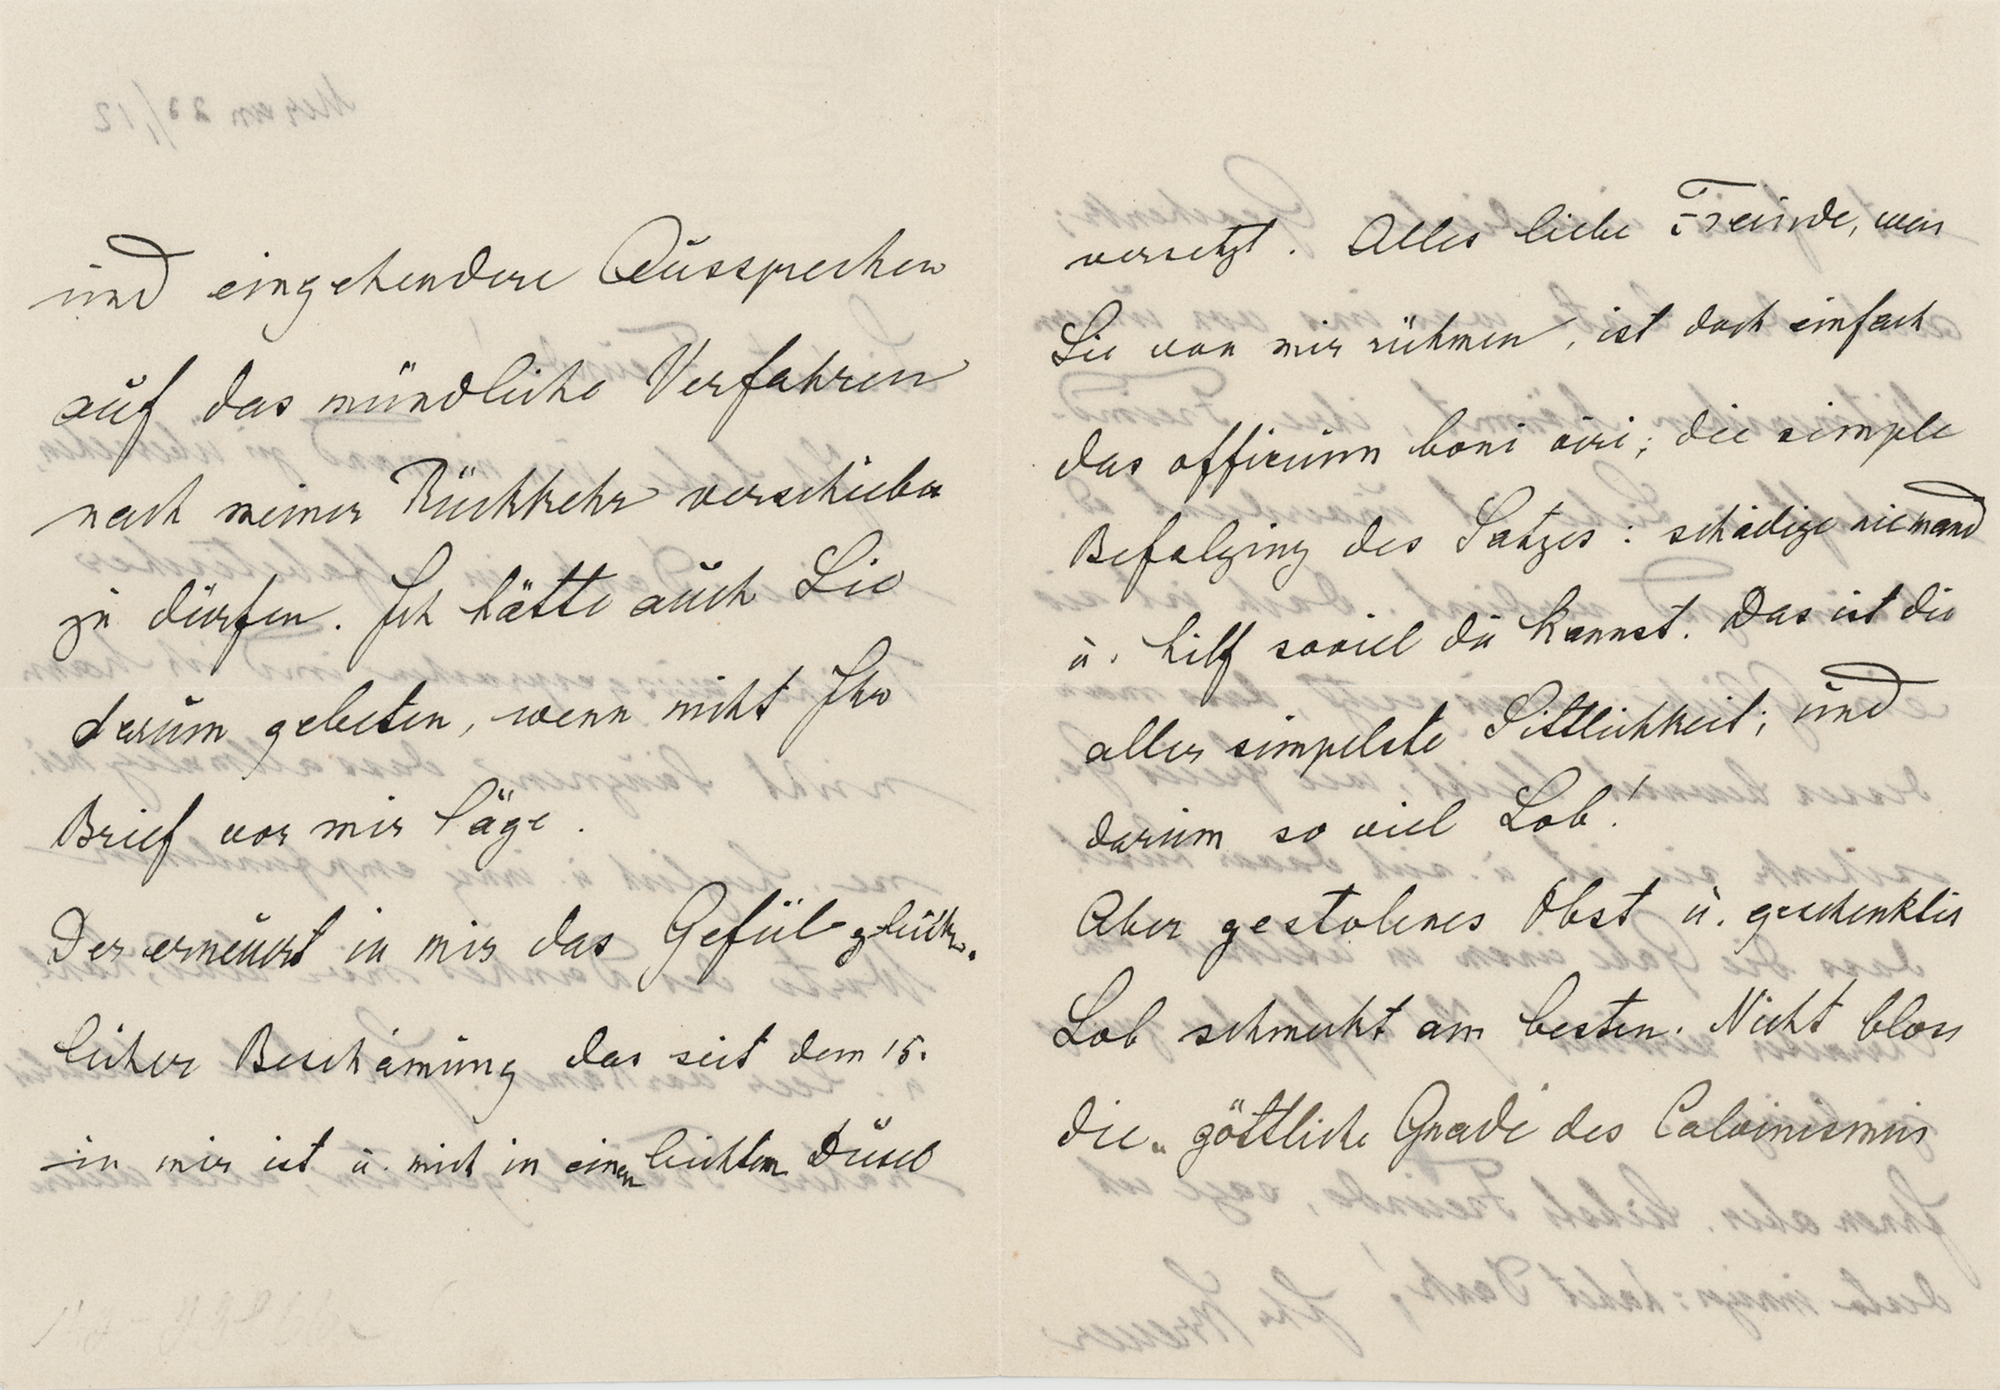 und eingehendere Aussprachen
auf das mündliche Verfahren
nach meiner Rückkehr verschieben
zu dürfen. Ich hätte auch Sie
darum gebeten, wenn nicht Ihr
Brief vor mir läge.
Der erneuert in mir das Gefül glück-
licher Beschämung das seit dem 15.
in mir ist u. mich in einen leichten Dusel
versetzt. Alles liebe Freunde, was
Sie von mir rühmen, ist doch einfach
das officium boni viri; die simple
Befolgung des Satzes: schädige niemand
u. hilf soviel du kannst. Das ist die
aller simpelste Sittlichkeit; und
darum so viel Lob!
Aber gestolenes Obst u. geschenktes
Lob schmeckt am besten. Nicht bloss
die göttliche Gnade des Calvinismus